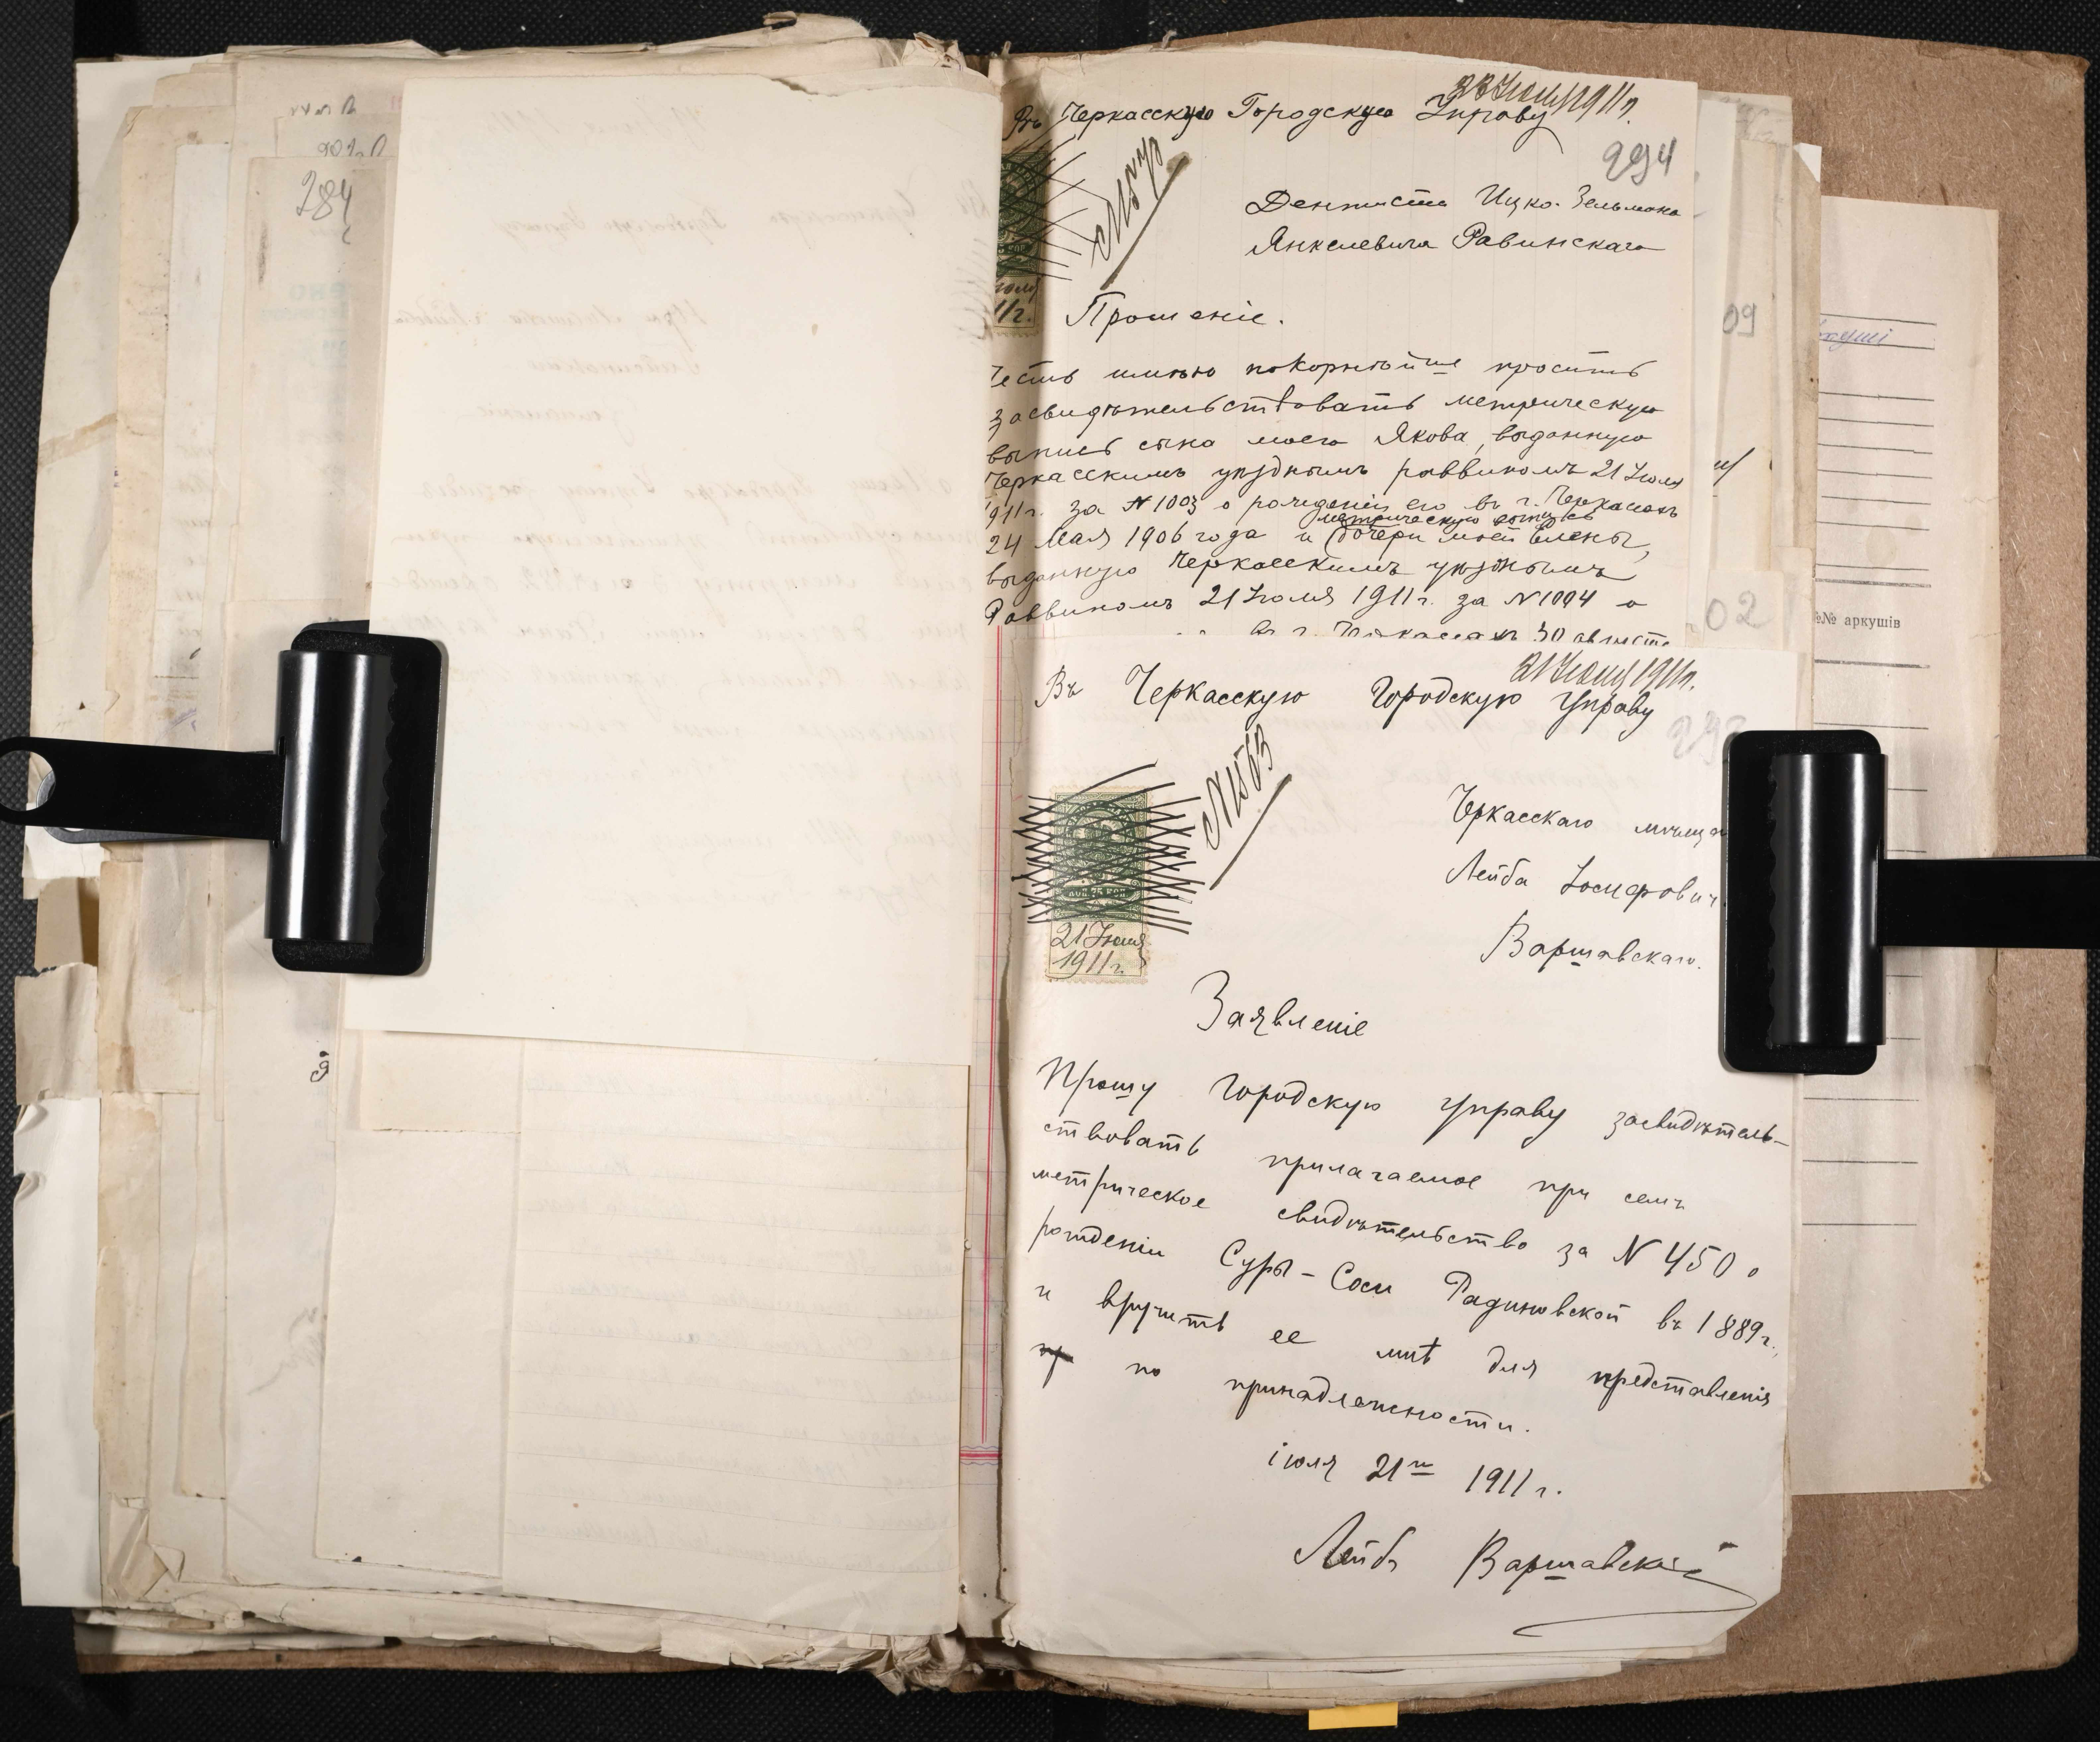 284
22 Іюля 1911 г.
Въ Черкасскую Городскую Управу
294
Дентиста Ицко-Зельмана
Янкелевича Равинскаго
Прошеніе.
11 г.
Честь имѣю покорнѣйше просить
засвидѣтельствовать метрическую
выпись сына моего Якова, выданную
Черкасскимъ уѣзднымъ раввиномъ 21 Іюля
1911 г. за № 1003 о рожденіи его въ г. Черкасахъ
метрическую выпись
24 Мая 1906 года и дочери моей Елены,
выданную Черкасскимъ уѣзднымъ
Раввиномъ 21 Іюля 1911 г. за № 1004 о
въ г. Черкассахъ 30 августа
21 Іюля 1911 г.
Въ Черкасскую Городскую Управу
№ 1563
Черкасскаго мѣщан
Лейба Іосифович
Варшавскаго.
КОП. 75 КОП.
21 Іюля
1911 г.
Заявленіе
Прошу Городскую Управу засвидѣтель-
ствовать прилагаемое при семъ
метрическое свидѣтельство за № 450 о
рожденіи Суры-Соси Радиновской въ 1889 г.,
и вручить ее мнѣ для представленія
по принадлежности.
іюля 21 го 1911 г.
Лейба Варшавскій
09
02
№№ аркушів